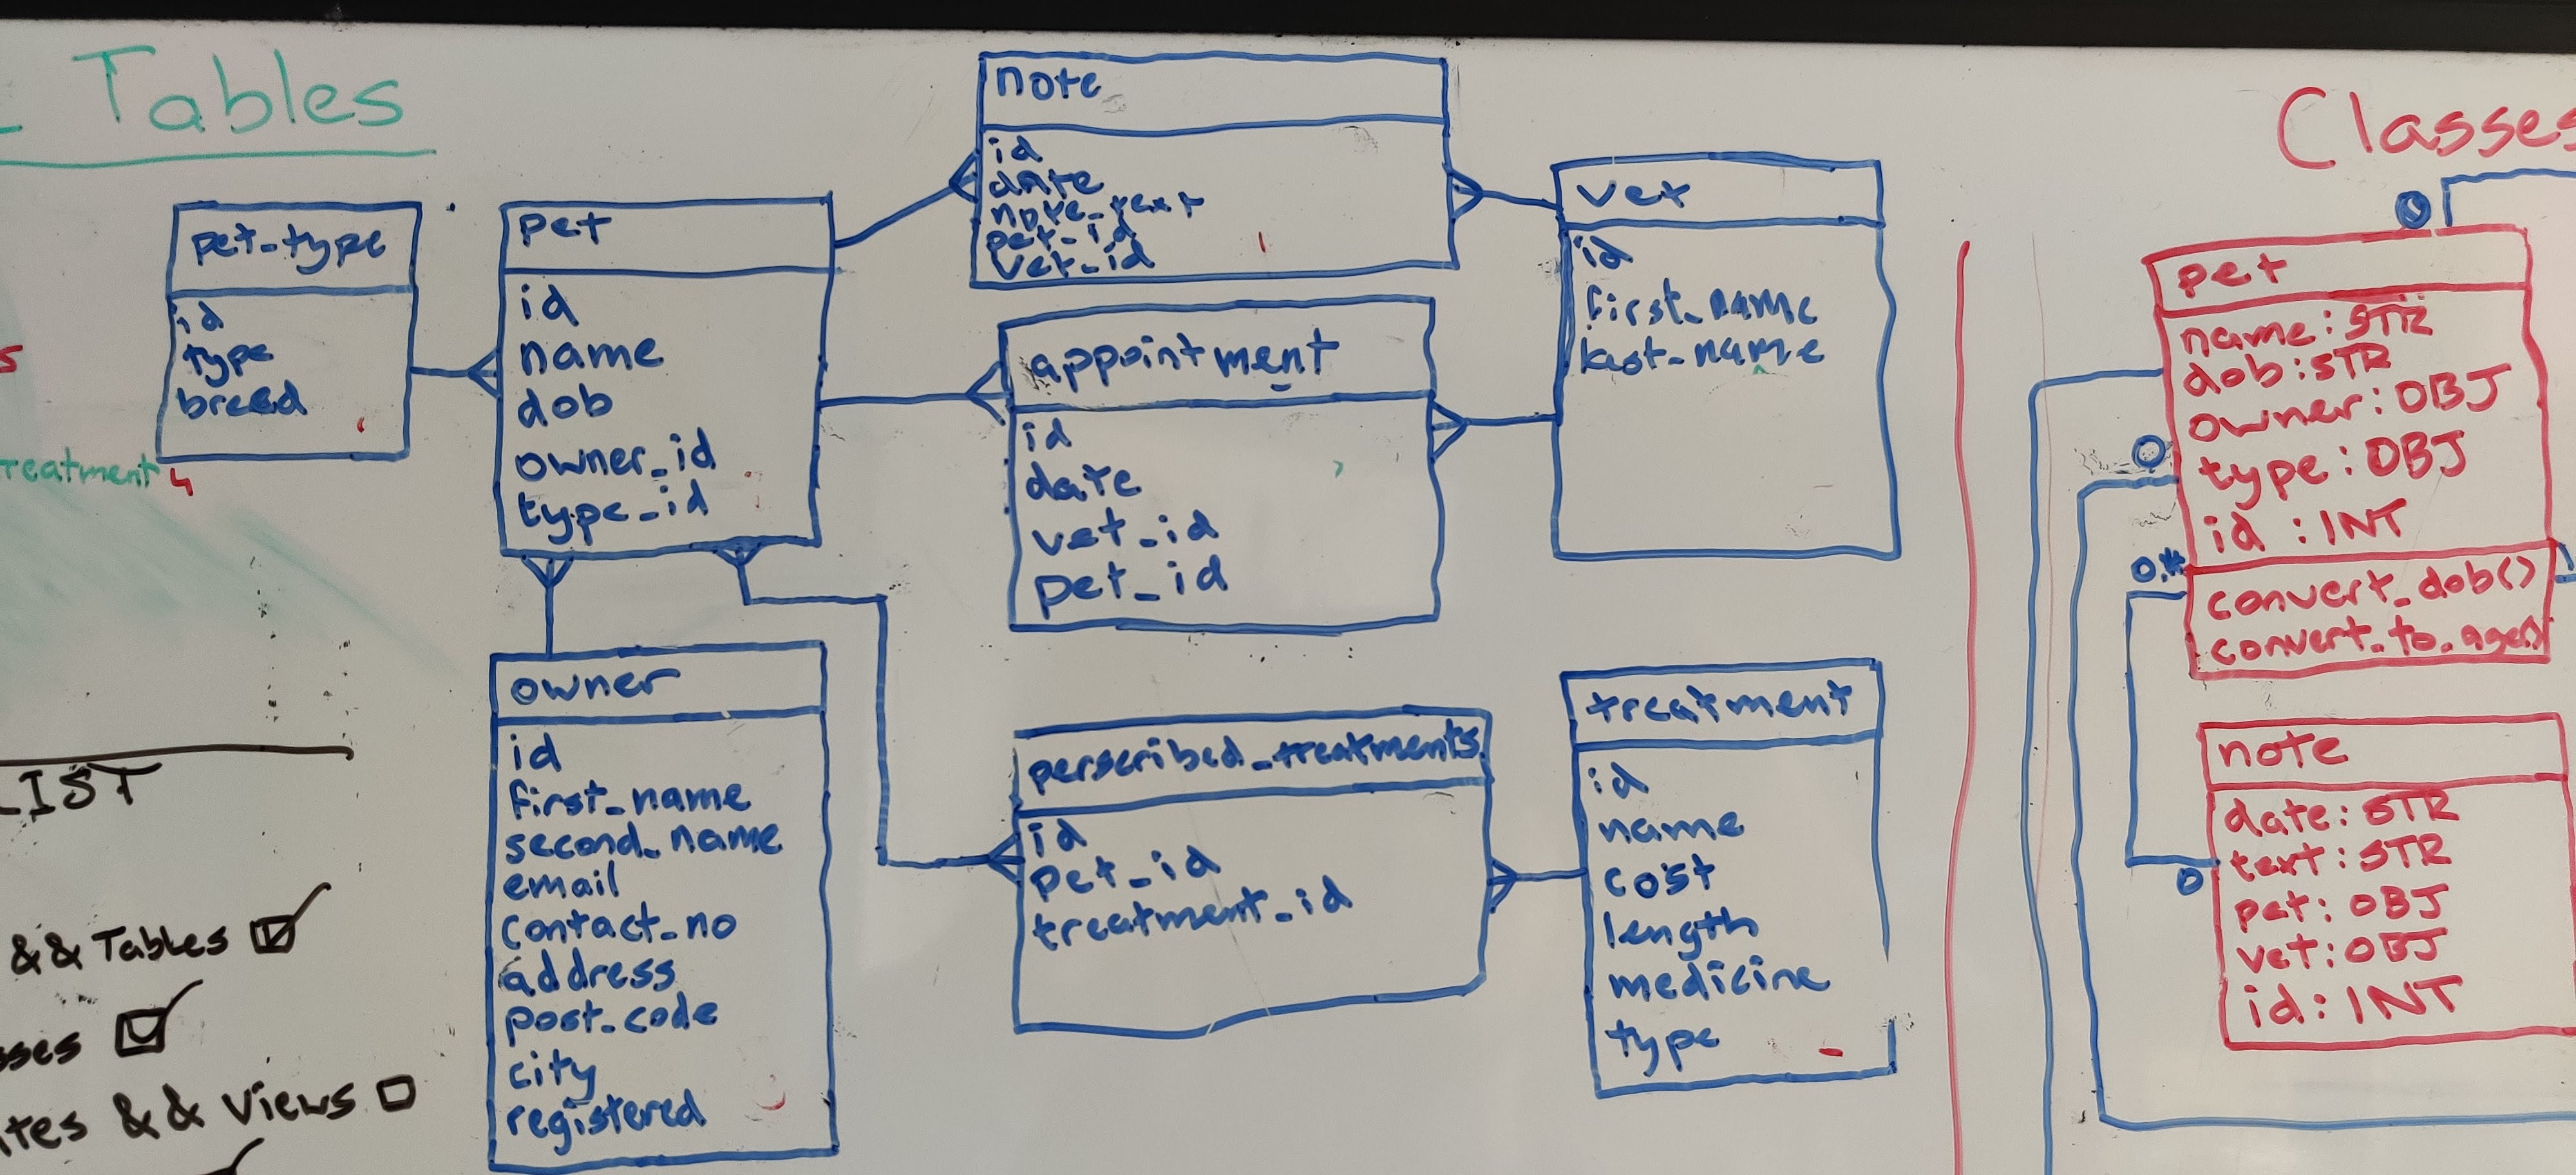 Tables
pet_type
id
type
breed
pet
id
name
dob
owner_id
type_id
note
id
date
note_text
pet_id
vet_id
vet
id
first_name
last_name
appointment
id
date
vet_id
pet_id
owner
id
first_name
second_name
email
contact_no
address
post_code
city
registered
perscribed_treatments
id
pet_id
treatment_id
treatment
id
name
cost
length
medicine
type
s
reatment 4
LIST
&& Tables
sses
tes && Views
Classes
0
pet
name: STR
dob: STR
owner: OBJ
0
type: OBJ
id : INT
0.*
convert_dob()
convert_to_age()
note
date: STR
text: STR
0
pet: OBJ
vet: OBJ
id: INT